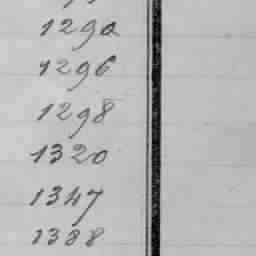 1290
1296
1298
1320
1347
1388